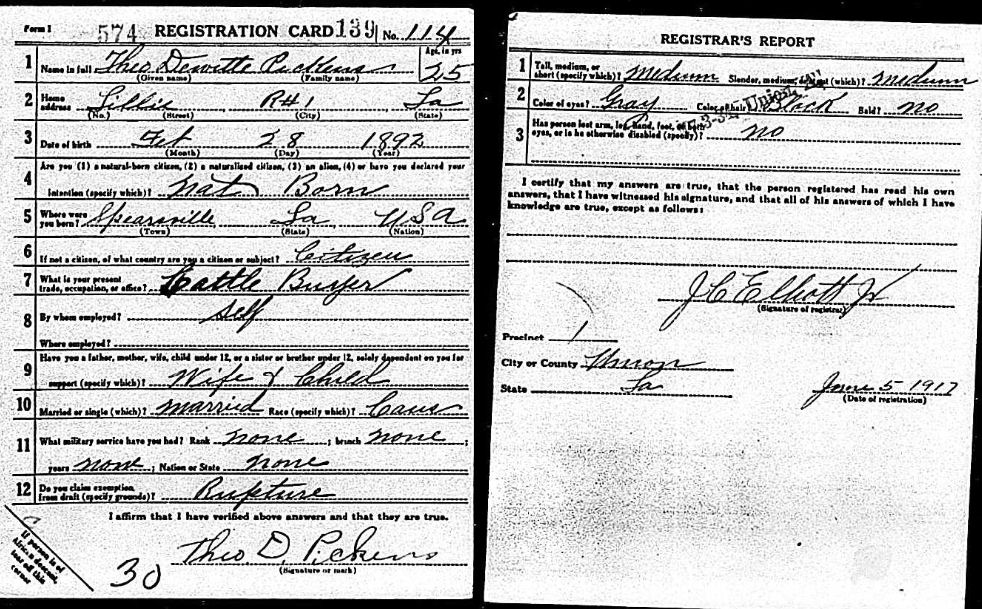 Form 1 574 REGISTRATION CARD 139 No. 114
1 Name in full Theo Dewitte Pickens Age, in yrs 25
(Given name) (Family name)
2 Home address Lillie R#1 La
(No.) (Street) (City) (State)
3 Date of birth Feb 28 1892
(Month) (Day) (Year)
4 Are you (1) a natural-born citizen, (2) a naturalized citizen, (3) an alien, (4) or have you declared your
intention (specify which)? Nat Born
5 Where were you born? Spearsville La USA
(Town) (State) (Nation)
6 If not a citizen, of what country are you a citizen or subject? Citizen
7 What is your present trade, occupation, or office? Cattle Buyer
8 By whom employed? Self
Where employed?
9 Have you a father, mother, wife, child under 12, or a sister or brother under 12, solely dependent on you for
support (specify which)? Wife & Child
10 Married or single (which)? married Race (specify which)? Caus
11 What military service have you had? Rank none ; branch none ;
years none ; Nation or State none
12 Do you claim exemption from draft (specify grounds)? Rupture
I affirm that I have verified above answers and that they are true.
Theo. D. Pickens
(Signature or mark)
If person is of African descent, tear off this corner
30
REGISTRAR'S REPORT
1 Tall, medium, or short (specify which)? medium Slender, medium, or stout (which)? medium
2 Color of eyes? Gray Color of hair? Black Bald? no
3 Has person lost arm, leg, hand, foot, or both
eyes, or is he otherwise disabled (specify)? no
I certify that my answers are true, that the person registered has read his own
answers, that I have witnessed his signature, and that all of his answers of which I have
knowledge are true, except as follows:
J C Elliott Jr
(Signature of registrar)
Precinct 1
City or County Union
State La June 5 1917
(Date of registration)